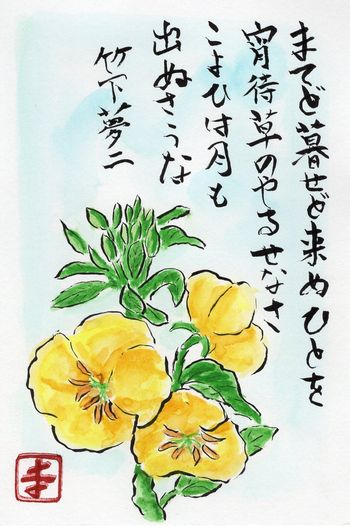 まてど暮せど来ぬひとを
宵待草のやるせなさ
こよひは月も
出ぬさうな
竹下夢二